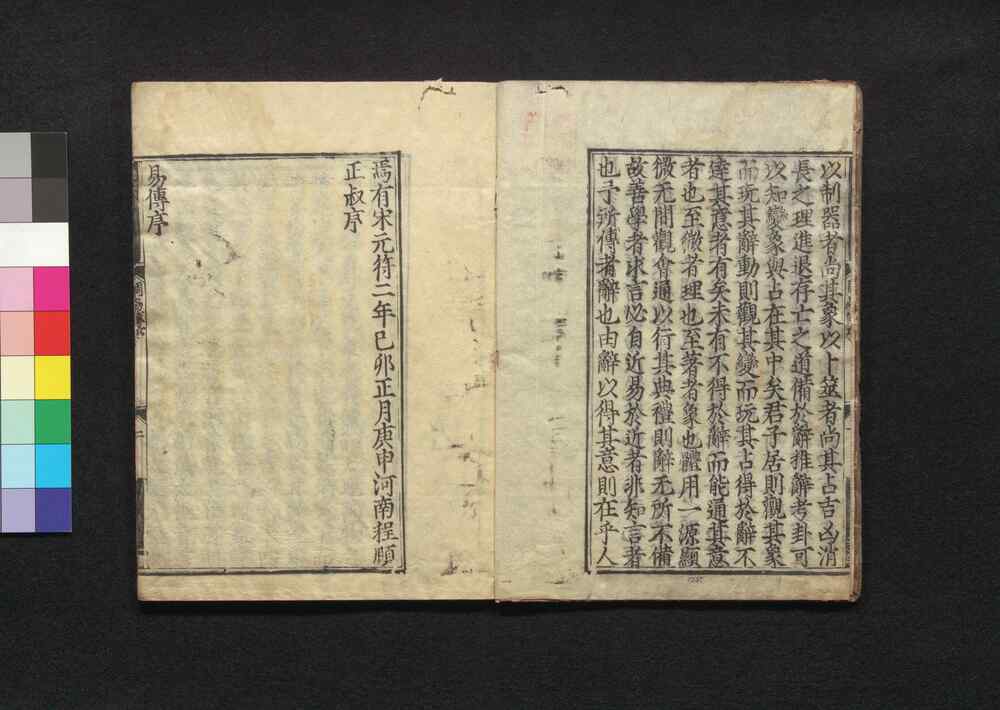 以制器者尚其象以卜筮者尚其占吉凶消
長之理進退存亡之道備於辭推辭考卦可
以知變象與占在其中矣君子居則觀其象
而玩其辭動則觀其變而玩其占得於辭不
達其意者有矣未有不得於辭而能通其意
者也至微者理也至著者象也體用一源顯
微无間觀會通以行其典禮則辭无所不備
故善學者求言必自近易於近者非知言者
也予所傳者辭也由辭以得其意則在乎人
焉有宋元符二年己卯正月庚申河南程頤
正叔序
易傳序